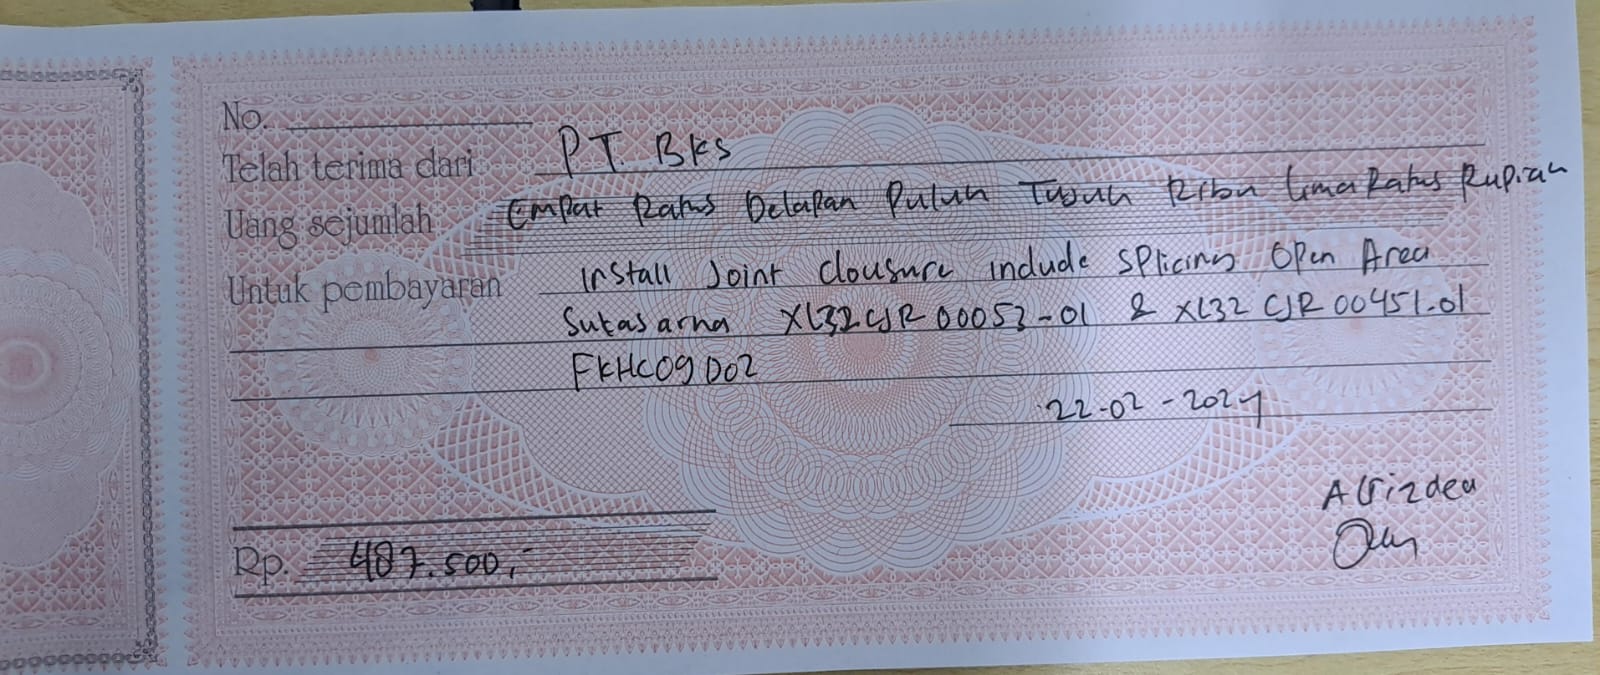 No.
Telah terima dari PT. BKS
Uang sejumlah Empat Ratus Delapan Puluh Tujuh Ribu Lima Ratus Rupiah
Untuk pembayaran Install Joint Clousure include Splicing Open Area
Sukasarna XL32CJR00053-01 & XL32CJR00451.01
FKHC09D02
22-02-2024
Alrizdea
Rp. 487.500,-